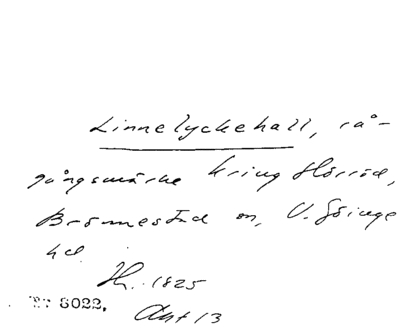 Linnelyckehall, rå-
gångsmärke kring Hörröd,
Brönnestad sn, V. Göinge
hd.
Hr. 1825
8022.
Akt 13